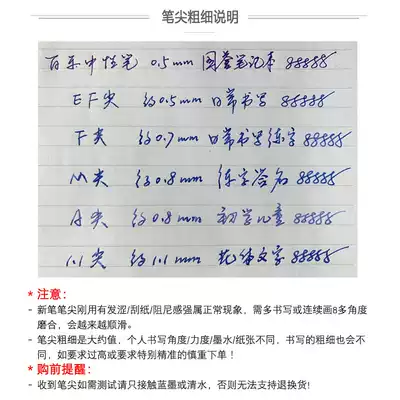 笔尖粗细说明
百乐中性笔 0.5mm 国誉笔记本 88888
EF尖 约0.5mm 日常书写 88888
F尖 约0.7mm 日常书写练字 88888
M尖 约0.8mm 练字签名 88888
A尖 约0.8mm 初学儿童 88888
1.1尖 约1.1mm 花体文字 88888
* 注意:
- 新笔笔尖刚用有发涩/刮纸/阻尼感强属正常现象,需多书写或连续画8多角度
磨合,会越来越顺滑。
- 笔尖粗细是大约值,个人书写角度/力度/墨水/纸张不同,书写的粗细也会不
同,如要求过高或要求特别精准的慎重下单!
* 购前提醒:
- 收到笔尖如需测试请只接触蓝墨或清水,否则无法支持退换货!